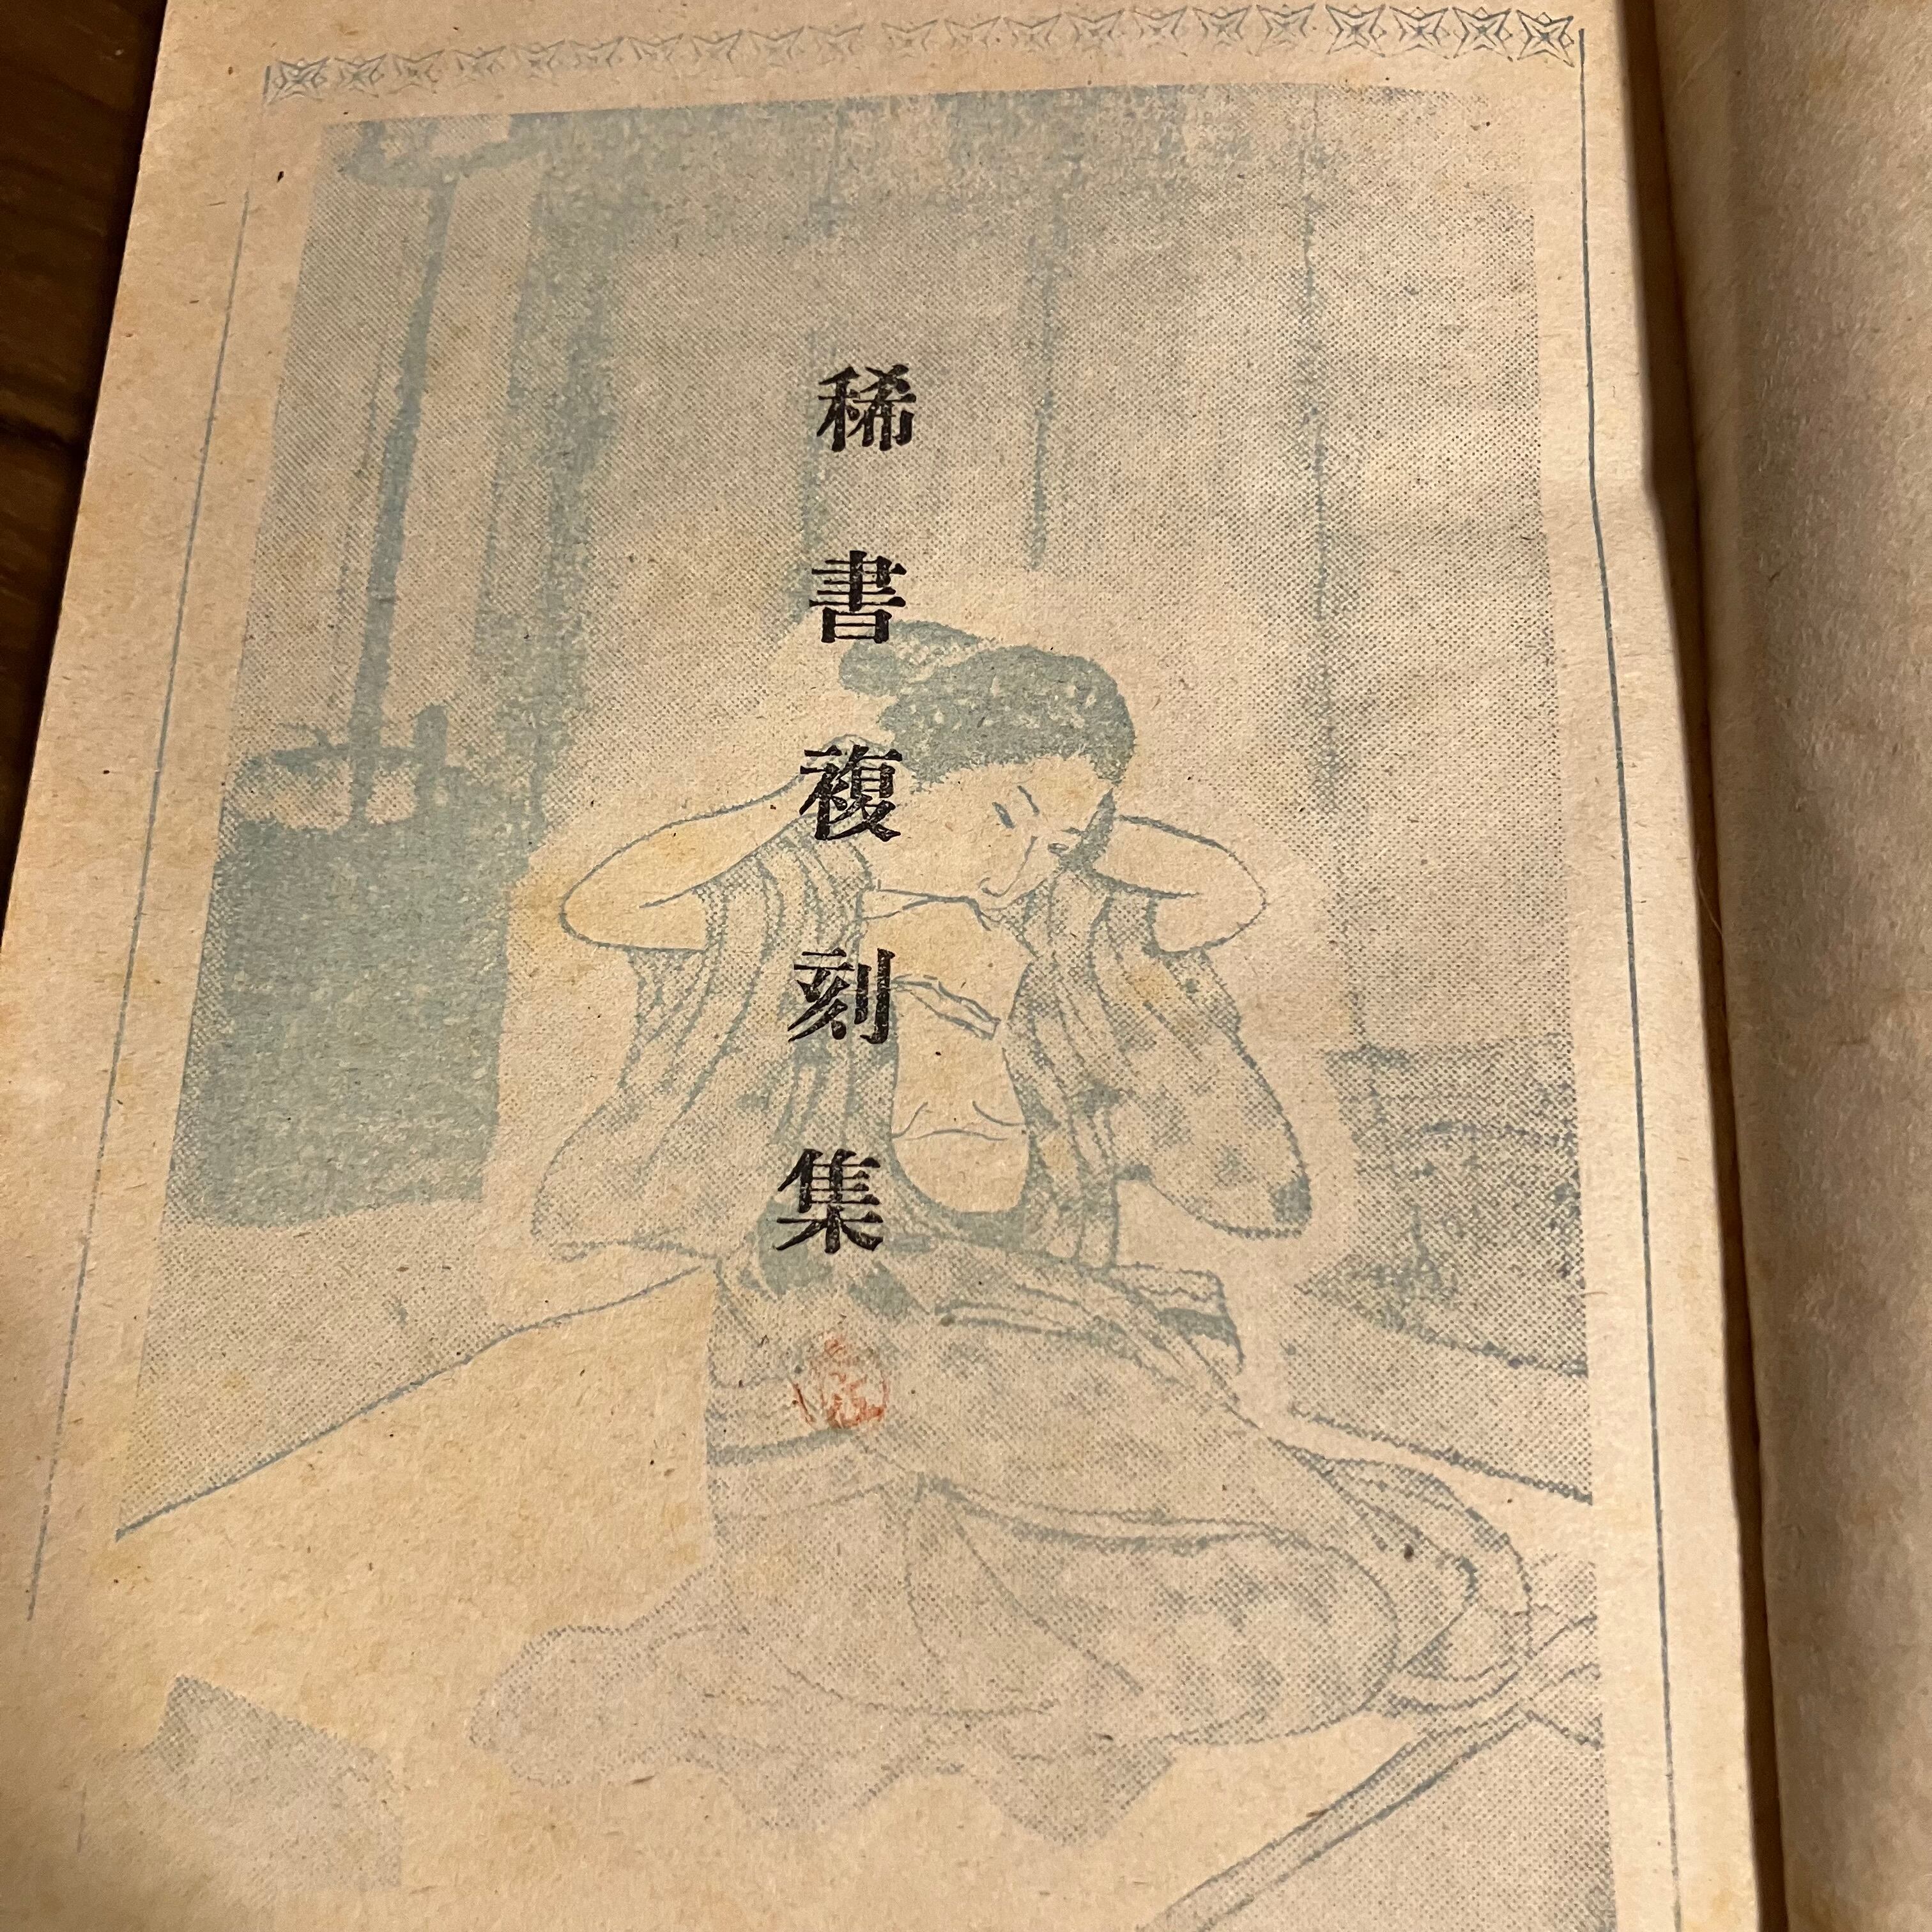 稀書複刻集